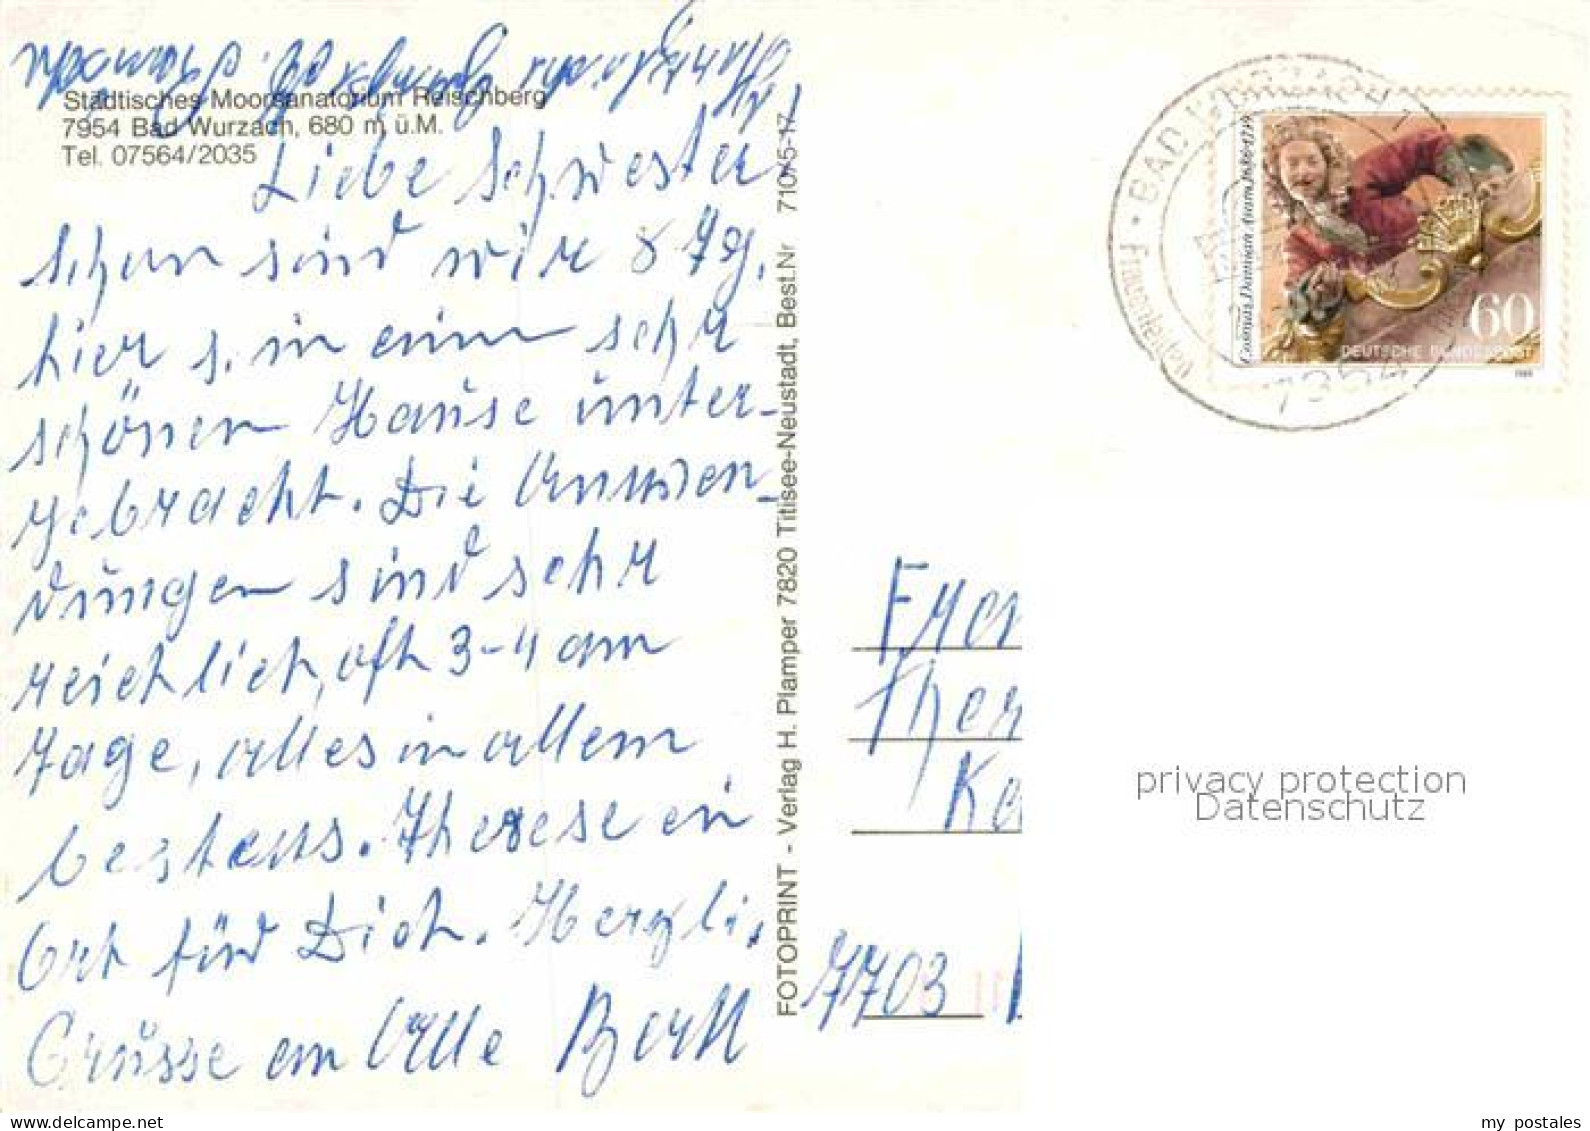 Städtisches Moorsanatorium Reischberg
7954 Bad Wurzach, 680 m ü.M.
Tel. 07564/2035
Liebe Schwester
schon sind wir 8 Tg.
hier s. in einem sehr
schönen Hause unter-
gebracht. Die Anwen-
dungen sind sehr
reichlich, oft 3-4 am
Tage, alles in allem
bestens. Therese ein
Ort für Dich. Herzli.
Grüsse an Alle Bertl
FOTOPRINT - Verlag H. Plamper 7820 Titisee-Neustadt, Best.Nr 710/5-17
BAD WURZACH
7954
Cosmas Damian Asam 1686-1739
60
DEUTSCHE BUNDESPOST
Ther
7703
privacy protection
Datenschutz
my postales